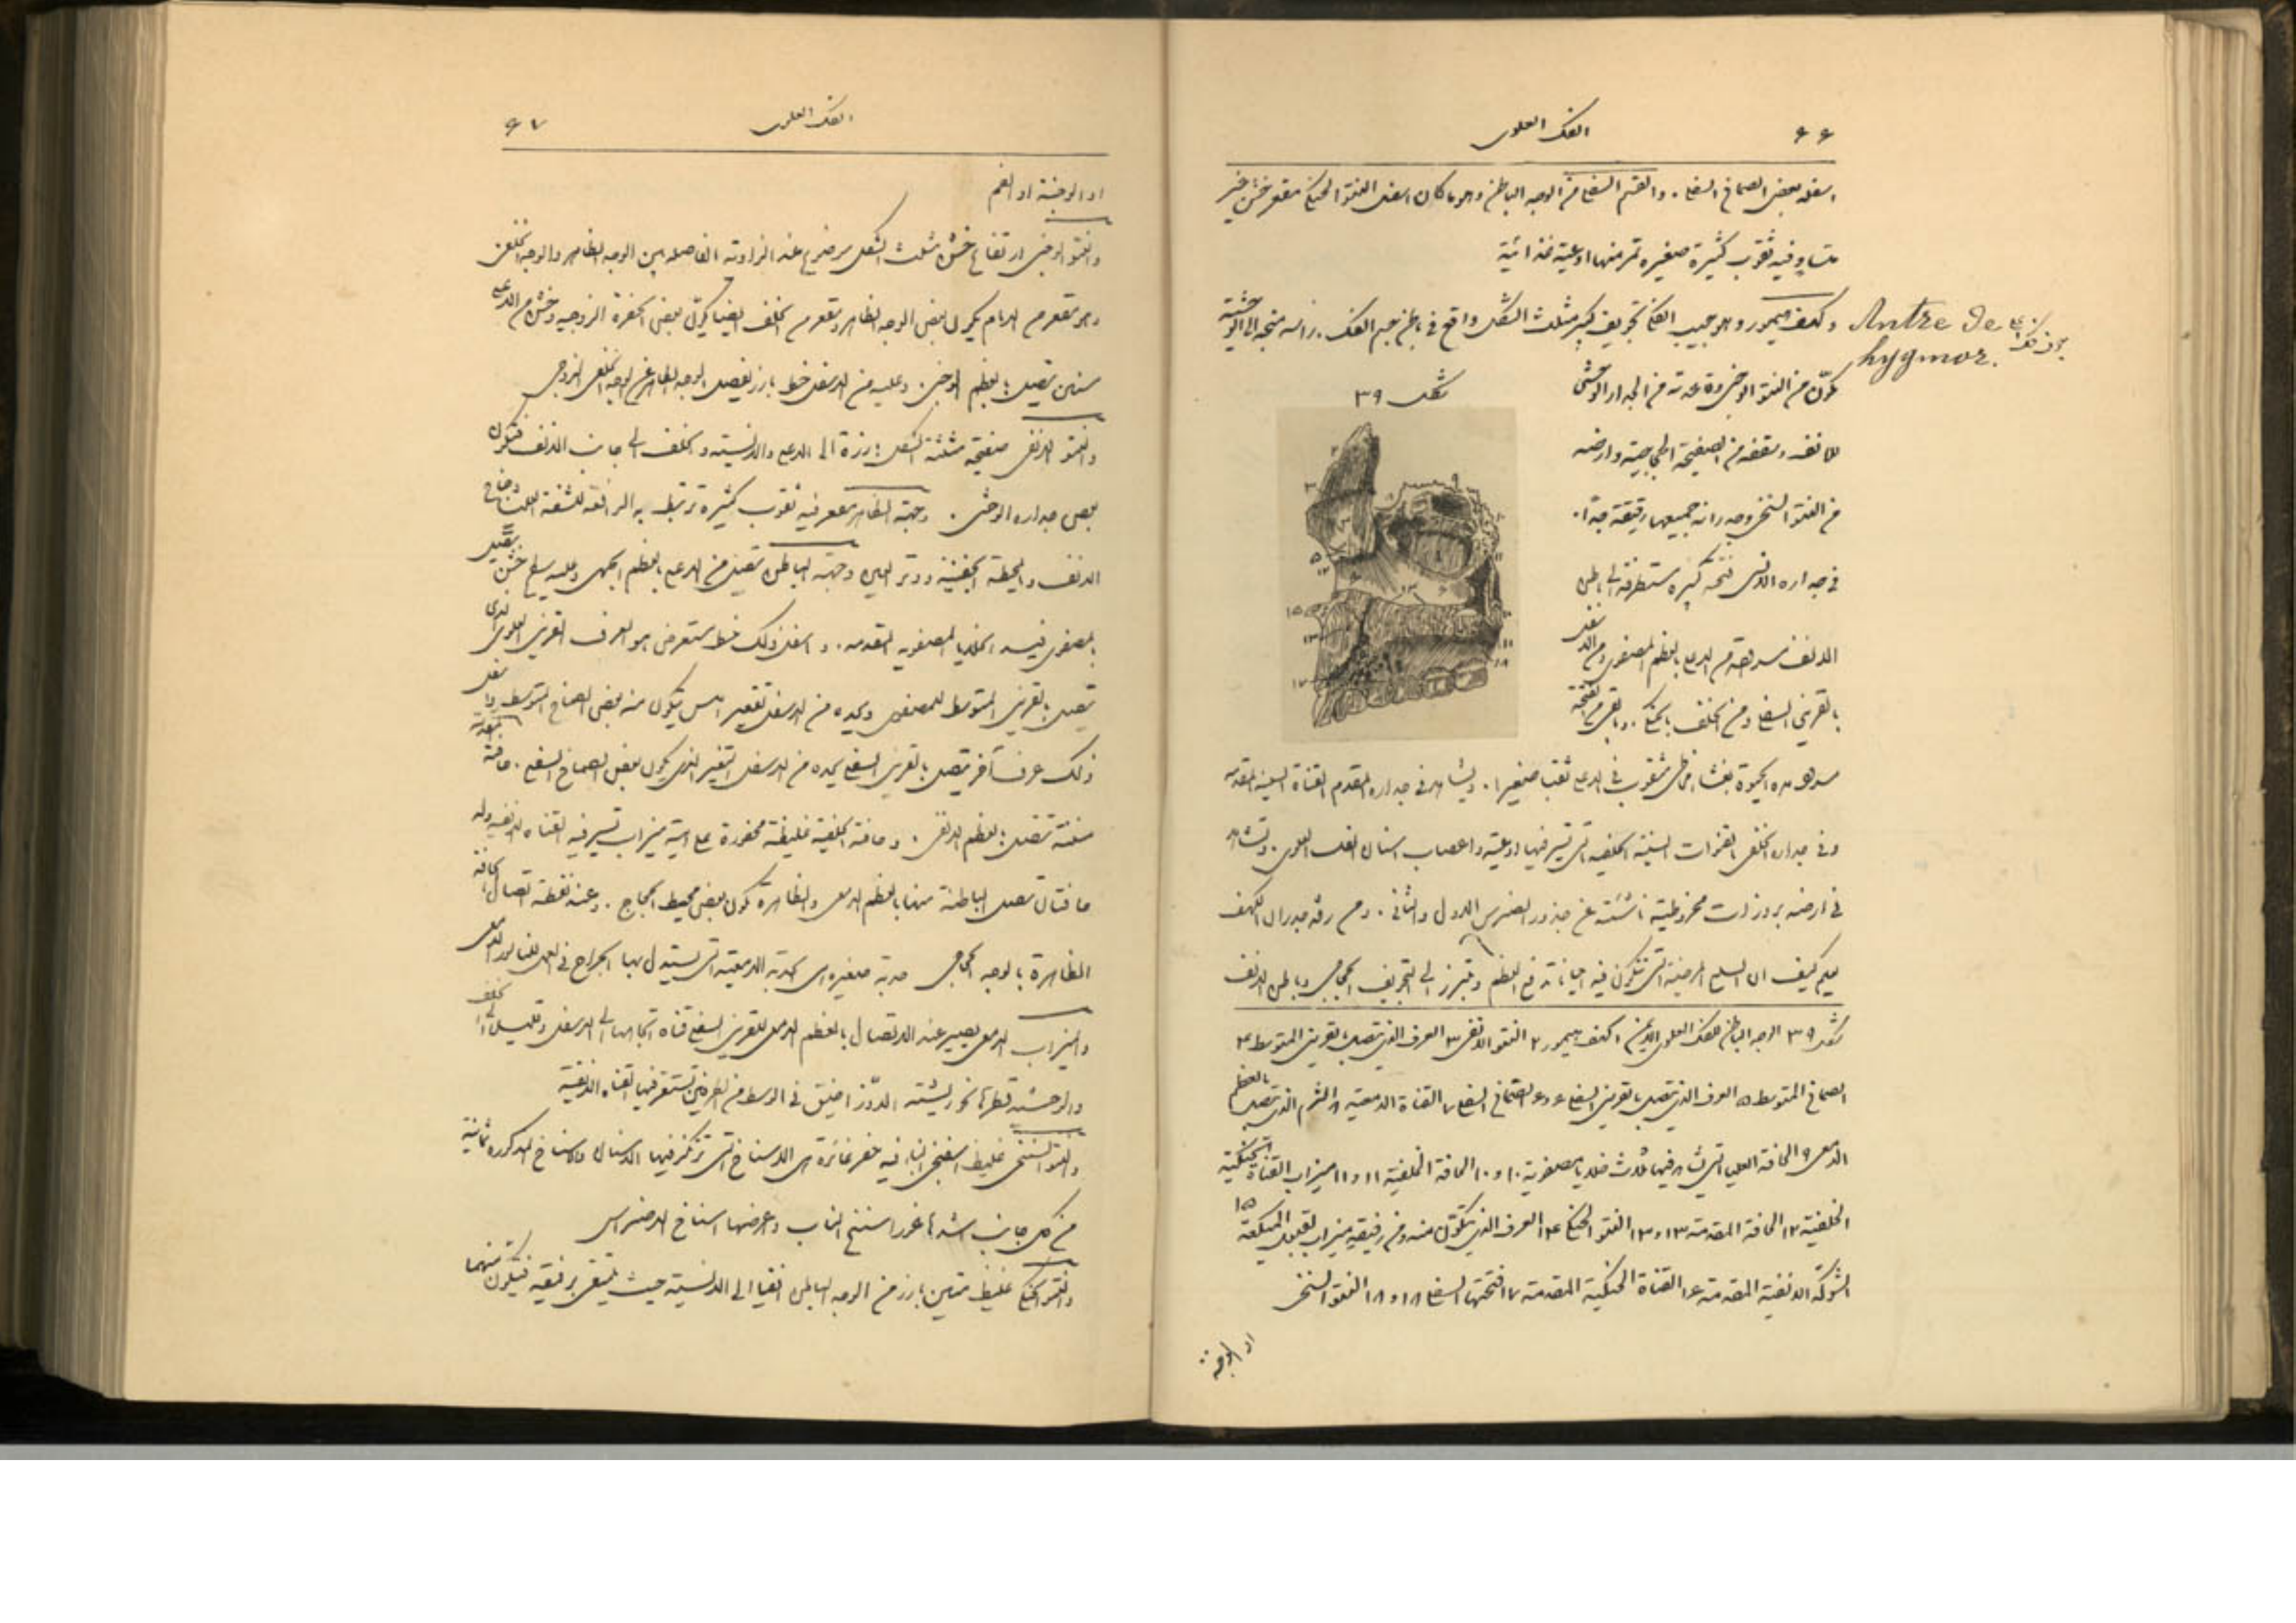 ٦٦ الفك العلوى
اسفله بعض الصماخ السفلى . والقسم السفلى من الوجه الباطن وهو ما كان اسفل النتوء الحنكى مقعر خشن غير
متساو وفيه ثقوب كثيرة صغيرة تمر منها اوعية غذائية
وكهف هيمور وهو جيب الفك تجويف كبير مثلث الشكل واقع فى باطن جسم الفك . راسه متجه الى الوحشية
Antre de
hygmor.
يتكون من النتوء الوجنى وقاعدته من الجدار الوحشى
شكل ٣٩
للانف وسقفه من الصفيحة الحجاجية وارضه
من النتوء السنخى وجدرانه جميعها رقيقة جدا .
فى جداره الانسى فتحة كبيرة مستطرقة الى باطن
الانف من الاعلى بالعظم المصفوى ومن الاسفل
بالقرينى السفلى ومن الخلف بالحنكى
فى الاعلى ثقبا صغيرا . ويشاهد فى جداره المقدم القناة السنية المقدمة
وفى جداره الخلفى القنوات السنية الخلفية التى تسير فيها اوعية واعصاب اسنان الفك العلوى . وتشاهد
فى ارضه بروزات مخروطية ناشئة عن جذور الضرس الاول والثانى . ومن رقة جدران الكهف
يعلم كيف ان السلع المرضية التى تتكون فيه احيانا تدفع العظم وتبرز الى التجويف الحجاجى وباطن الانف
شكل ٣٩ الوجه الباطن للفك العلوى الايمن ١ كهف هيمور ٢ النتوء الانفى ٣ العرف الذى يتصل بالقرينى المتوسط ٤
الصماخ المتوسط ٥ العرف الذى يتصل بالقرينى السفلى ٦ و ٦ الصماخ السفلى ٧ القناة الدمعية ٨ الشرم الذى يتصل بالعظم
الدمعى ٩ الحافة العليا التى يشاهد فيها ثلاث خلايا مصفوية ١٠ و ١٠ الحافة الخلفية ١١ و ١١ ميزاب القناة الحنكية
الخلفية ١٢ الحافة المقدمة ١٣ و ١٣ النتوء الحنكى ١٤ العرف الذى يتكون منه ومن رفيقه ميزاب لقبول الميكعة ١٥
الشوكة الانفية المقدمة ١٦ القناة الحنكية المقدمة ١٧ فتحتها السفلى ١٨ و ١٨ النتوء السنخى
او الوجنة
الفك العلوى ٦٧
او الوجنة او الفم
والنتوء الوجنى ارتفاع خشن مثلث الشكل موضوع عند الزاوية الفاصلة بين الوجه الظاهر والوجه الخلفى
وهو مقعر من الامام يكون بعض الوجه الظاهر ومقعر من الخلف ايضا يكون بعض الحفرة الزوجية وخشن من الاعلى
مسنن يتصل بالعظم الوجنى . وعليه من الاسفل خط بارز يفصل الوجه الظاهر عن الوجه الخلفى الزوجى
والنتوء الانفى صفيحة مثلثة الشكل بارزة الى الاعلى والانسية والخلف الى جانب الانف فتكون
بعض جداره الوحشى . وجهته الظاهرة مقعر فيه ثقوب كثيرة ترتبط به الرافعة للشفة العليا وجناح
الانف والمحيطة الجفنية ووتر العين وجهته الباطن تتصل من الاعلى بالعظم الجبهى وعليه سطح خشن يتصل
بالمصفوى فيسد الخلايا المصفوية المقدمة . واسفل ذلك خط مستعرض هو العرف القرينى العلوى الذى
يتصل بالقرينى المتوسط للمصفوى ويحده من الاسفل تقعير املس يتكون منه بعض الصماخ المتوسط واسفل
ذلك عرف آخر يتصل بالقرينى السفلى يحده من الاسفل التقعير الذى يكون بعض الصماخ السفلى . حافته المقدمة
مسننة تتصل بالعظم الانفى . وحافته الخلفية غليظة محفورة على هيئة ميزاب تسير فيه القناة الانفية وله
حافتان تتصل الباطنة منها بالعظم الدمعى والظاهرة تكون بعض محيط الحجاج . وعند نقطة اتصال الحافة
الظاهرة بالوجه الحجاجى حدبة صغيرة هى الحدبة الدمعية التى يستدل بها الجراح فى العمل للناسور الدمعى
والميزاب الدمعى يصير عند الاتصال بالعظم الدمعى للقرينى السفلى قناة اتجاهها الى الاسفل وقليلا الى الخلف
والوحشية قطرها نحو ريشة الاوز اضيق فى الوسط من الطرفين تستقر فيها القناة الانفية
والنتوء السنخى غليظ اسفنجى البناء فيه حفر غائرة هى الاسناخ التى ترتكز فيها الاسنان والاسناخ المذكورة ثمانية
من كل جانب اشدها غورا سنخ الناب واعرضها اسناخ الاضراس
والنتوء الحنكى غليظ متين بارز من الوجه الباطن افقيا الى الانسية حيث يلتقى برفيقه فيتكون منهما